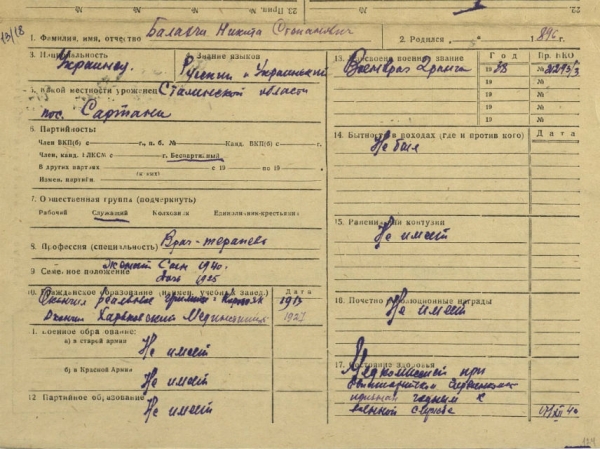 13/18
1. Фамилия, имя, отчество Балабчи Никита Степанович
2. Родился 1896 г.
3. Национальность Украинец
4. Знание языков Русский и Украинский
5. В какой местности уроженец Сталинской области
пос. Сартана
6. Партийность
Член ВКП(б) с г., п. б. № Канд. ВКП(б) с г.
Член, канд. ВЛКСМ с г. Беспартийный
В других партиях с 19 по 19 г.
(в них)
Измен. партийн.
7. Общественная группа (подчеркнуть)
Рабочий Служащий Колхозник Единоличник-крестьянин
8. Профессия (специальность) Врач-терапевт
9. Семейное положение Женатый Сын 1940.
1925
10. Гражданское образование (наимен. учебн. завед.) Дата
Окончил реальное 1915
Окончил Харьковский Мединститут 1927
11. Военное образование:
а) в старой армии
Не имеет
б) в Красной Армии
Не имеет
12. Партийное образование
Не имеет
13. Присвоено военное звание Год Пр. НКО
Военврач 2 ранга 19 38 №
19 №
19 №
19 №
14. Бытность в походах (где и против кого) Дата
Не был
15. Ранения и контузии
Не имеет
16. Почетно-революционные награды
Не имеет
17. Состояние здоровья
Медкомиссией при
признан годным к
военной службе